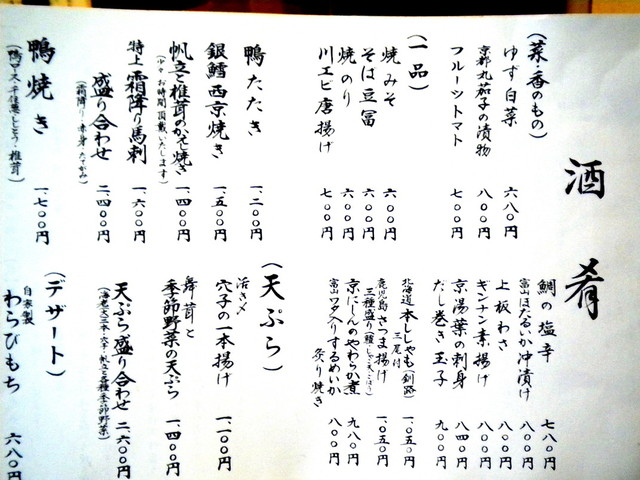 酒肴
(菜・香のもの)
ゆず白菜 六八〇円
京都丸茄子の漬物 八〇〇円
フルーツトマト 七〇〇円
(一品)
焼みそ 六〇〇円
そば豆冨 六〇〇円
焼のり 六〇〇円
川エビ唐揚げ 七〇〇円
鴨たたき 一、二〇〇円
銀鱈西京焼き 一、五〇〇円
帆立と椎茸のかきそ焼き 一、四〇〇円
(少々お時間頂戴いたします)
特上霜降り馬刺 一、六〇〇円
盛り合わせ 二、四〇〇円
(霜降り・赤身・たてがみ)
鴨焼き 一、七〇〇円
鯛の塩辛 七八〇円
富山ほたるいか沖漬け 八〇〇円
上板わさ 八〇〇円
ギンナン素揚げ 八〇〇円
京湯葉の刺身 八四〇円
だし巻き玉子 九〇〇円
北海道本ししゃも(釧路) 一、〇五〇円
三尾付
鹿児島さつま揚げ 一、〇五〇円
京にしんのやわらか煮 九八〇円
富山ワタ入りするめいか 八〇〇円
炙り焼き
(天ぷら)
活き〆
穴子の一本揚げ 一、一〇〇円
舞茸と
季節野菜の天ぷら 一、四〇〇円
天ぷら盛り合わせ 二、六〇〇円
(デザート)
自家製
わらびもち 六八〇円